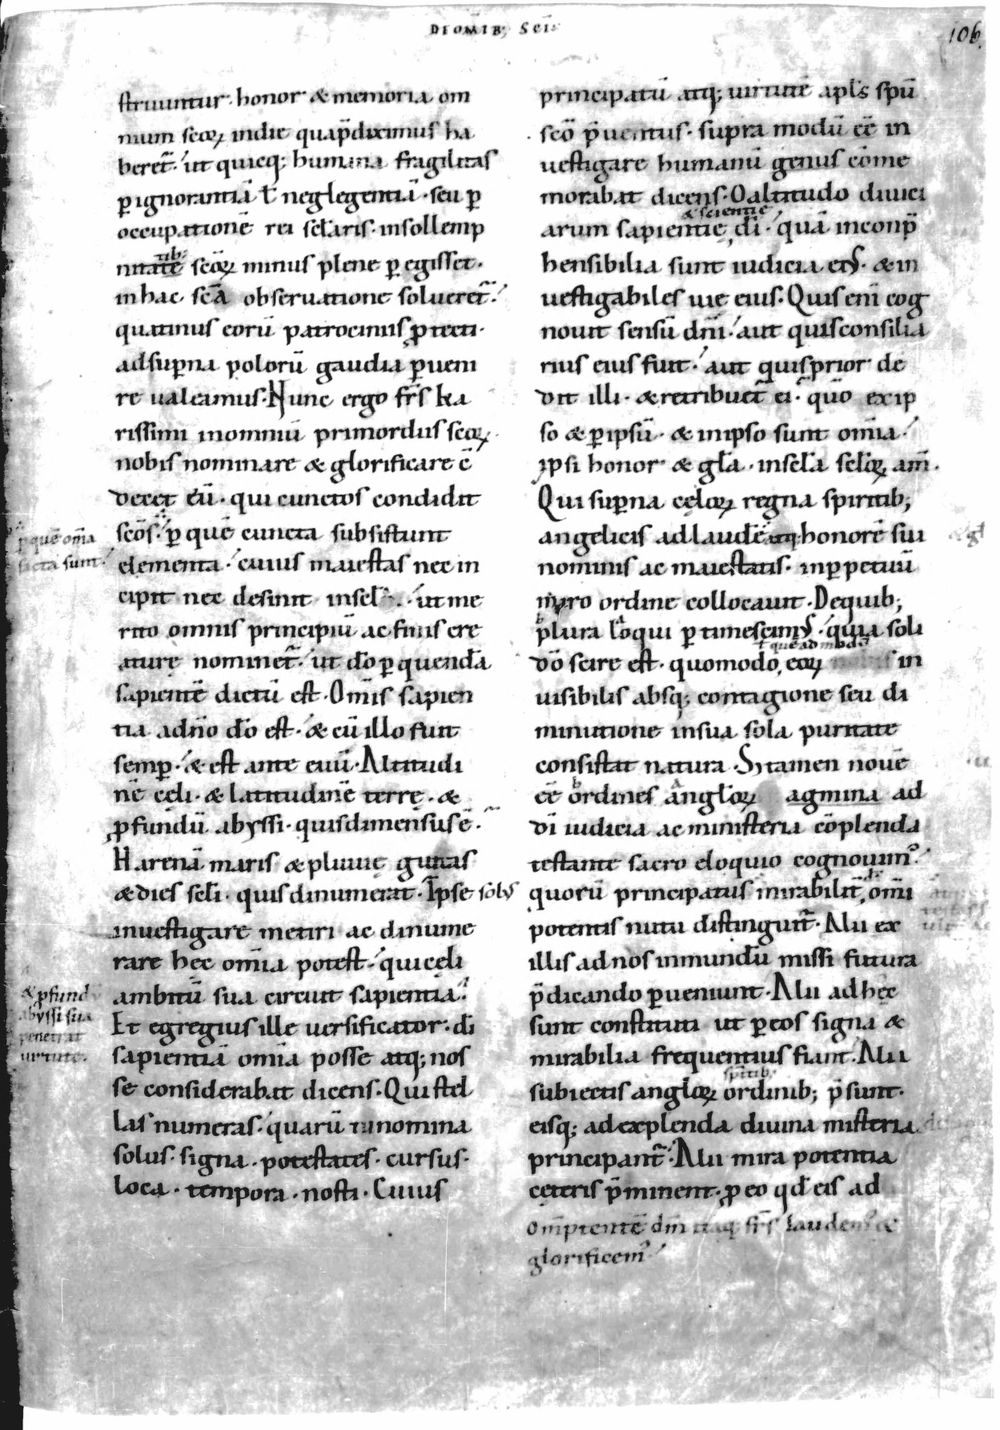 DIOMIB; SCIS
106.
struuntur. honor & memoria om
nium scoꝝ indie quap̄diximus ha
beret᷑. ut quicq; humana fragilitas
ꝑignorantiā ł neglegentiā. seu ꝑ
occupationē rei sclaris. insollemp
tib;
nitate scoꝝ minus plene ꝑegisset.
inhac scā obseruatione solueret᷑.
quatinus eorū patrociniis ꝓtecti.
adsup̄na polorū gaudia ꝑueni
re ualeamus. Nunc ergo frs̄ ka
rissimi inomniū primordiis scoꝝ
nobis nominare & glorificare ē
decet eū. qui cunctos condidit
scōs. ꝑ quē cuncta subsistunt
ꝑ quē om̄ia
facta sunt.
elementa. cuius maiestas nec in
cipit nec desinit inscl. ut me
rito omnis principiū ac finis cre
aturę nominet᷑. ut dō ꝑquendā
sapientē dictū est. Om̄is sapien
tia adn̄o dō est. & cū illo fuit
semꝑ. & est ante euū. Altitudi
nē cęli. & latitudinē terrę. &
ꝓfundū abyssi. quisdimensusē.
Harenā maris & pluuię guttas
& dies scli. quis dinumerat. Ipse solus
inuestigare metiri ac dinume
rare hęc om̄ia potest. qui cęli
ambitū sua circuit sapientia.
& ꝓfund
abyssi sua
penetrat
uirtute.
Et egregius ille uersificator. dī
sapientiā om̄ia posse atq; nos
se considerabat dicens. Qui stel
las numeras. quarū tu nomina
solus. signa. potestates. cursus.
loca. tempora. nosti. Cuius
principatū atq; uirtutē apls̄ spū
scō p̄uentus. supra modū eē in
uestigare humanū genus cōme
morabat dicens. O altitudo diuici
& scientię
arum sapientię dī. quā inconp̄
hensibilia sunt iudicia ei9. & in
uestigabiles uię eius. Quis enī cog
nouit sensū dn̄i. aut quis consilia
rius eius fuit. aut quis prior de
dit illi. & retribuet᷑ ei. quō ex ip
so & ꝑ ipsū. & in ipso sunt om̄ia.
ipsi honor & gla. inscla scloꝝ am̄.
Qui sup̄na cęloꝝ regna spiritib;
angelicis ad laudē atq; honorē sui
nominis ac maiestatis. inꝑpetuū
miro ordine collocauit. De quib;
plura loqui ꝑtimescim9. quia soli
ł quē ad modū
dō scire est. quomodo eoꝝ in
uisibilis absq; contagione seu di
minutione in sua sola puritate
consistat natura. Si tamen nouē
eē ordines angloꝝ agmina ad
dī iudicia ac ministeria cōplenda
testante sacro eloquio cognouim9.
quorū principatus mirabilit᷑ om̄i
potentis nutu distinguit᷑. Alii ex
illis ad nos in mundū missi futura
p̄dicando ꝑueniunt. Alii ad hęc
sunt constituti ut ꝑ eos signa &
mirabilia frequentius fiant. Alii
spitib;
subiectis angloꝝ ordinib; p̄sunt.
eisq; ad explenda diuina misteria
principant᷑. Alii mira potentia
cęteris p̄minent. ꝓ eo qd̄ eis ad
Omp̄tentē dn̄m itaq; frs̄ laudem9 &
glorificem9.